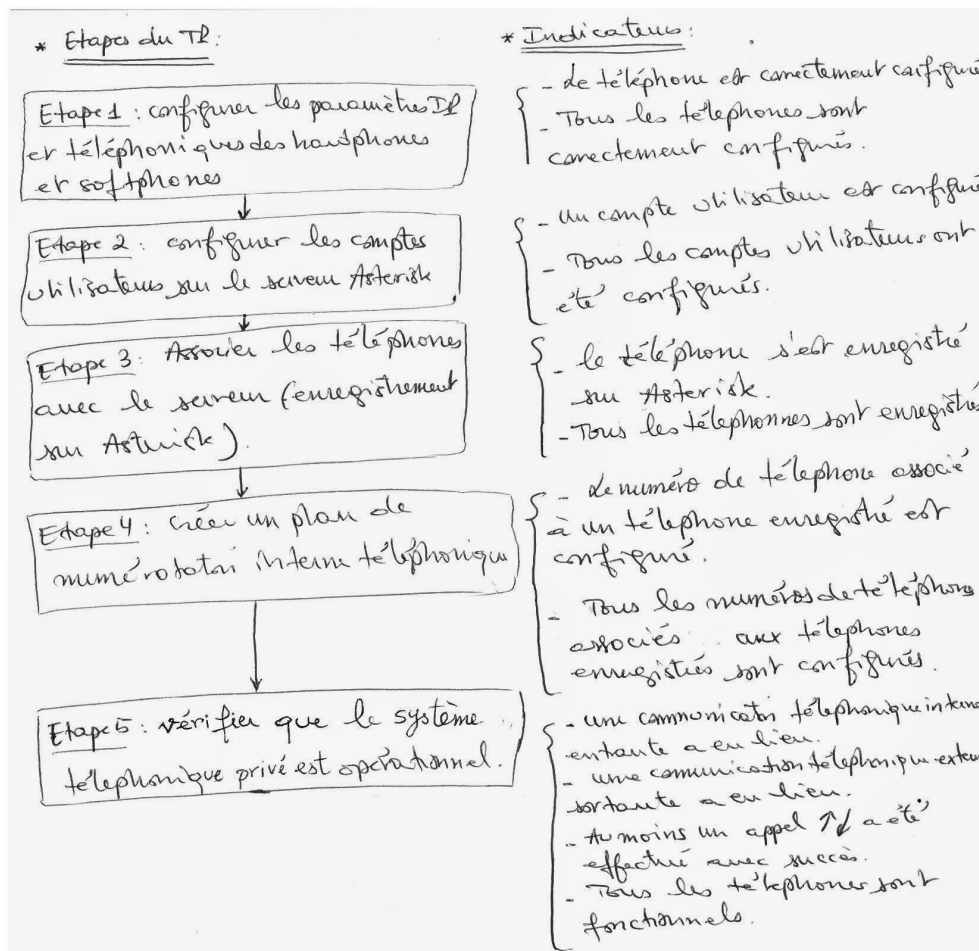 * Etapes du TP:
Etape 1 : configurer les paramètres IP
et téléphoniques des hardphones
et softphones
Etape 2 : configurer les comptes
utilisateurs sur le serveur Asterisk
Etape 3 : Associer les téléphones
avec le serveur (enregistrement
sur Asterisk).
Etape 4 : créer un plan de
numérotation interne téléphonique
Etape 5 : vérifier que le système
télephonique privé est opérationnel.
* Indicateurs :
- Le téléphone est correctement configuré
- Tous les télephones sont
correctement configurés.
- Un compte utilisateur est configuré
- Tous les comptes utilisateurs ont
été configurés.
- le téléphone s'est enregistré
sur Asterisk.
- Tous les télephonnes sont enregistrés
- Le numéro de télephone associé
à un télephone enregistré est
configuré.
- Tous les numéros de téléphone
associés aux télephones
enregistrés sont configurés.
- une communication télephonique interne
entrante a eu lieu.
- une communication télephonique extern
sortante a eu lieu.
- Au moins un appel ↑↓ a été
effectué avec succès.
- Tous les télephones sont
fonctionnels.